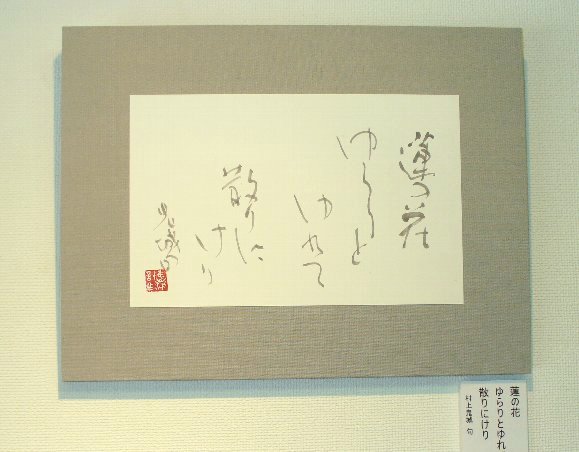 蓮の花
ゆらりと
ゆれて
散りに
けり
鬼城句
蓮の花
ゆらりとゆれ
散りにけり
村上鬼城 句